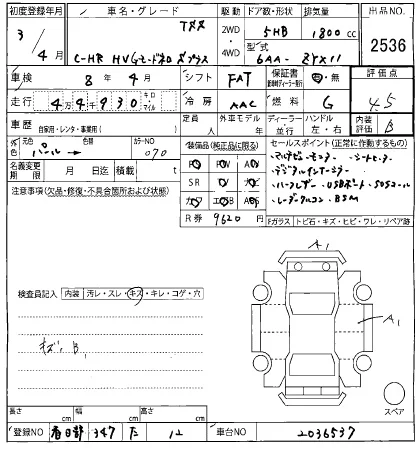 初度登録年月 車名・グレード 駆動 ドア数・形状 排気量 出品NO.
3/4月 トヨタ C-HR HV Gモードネロ Sプラス 2WD・4WD 5HB 1800cc 2536
型式 6AA-ZYX11
車検 8年4月 シフト FAT 保証書 有・無 評価点 4.5
走行 44930 キロ・マイル 冷房 AAC 燃料 G 内装評価 B
車歴 自家用・レンタ・事業用( ) 定員 人 外車モデル 年 ディーラー・並行 ハンドル 左・右
外色 元色 パール 色替 カラーNO 070
装備品(純正品に限る) セールスポイント(正常に作動するもの)
マルチビューモニター・シートヒーター
デジタルインナーミラー
ハーフレザー・USBポート・SOSコール
レーダークルコン・BSM
名義変更期限 月 日迄 積載 t
SR
注意事項(欠品・修復・不具合箇所および状態)
R券 9620円
Fガラス トビ石・キズ・ヒビ・ワレ・リペア跡
A1
A1
検査員記入 内装 汚レ・スレ・キズ・キレ・コゲ・穴
キズ、B、
スペア
長さ cm 幅 cm 高さ cm
登録NO 春日部 347 た 12 車台NO 2036537